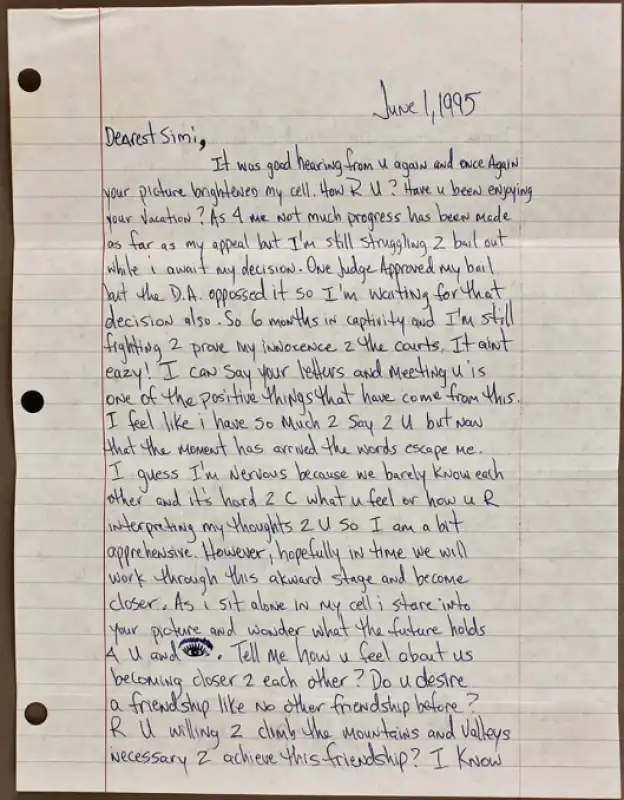 June 1, 1995
Dearest Simi,
It was good hearing from u again and once Again
your picture brightened my cell. How R U? Have u been enjoying
your vacation? As 4 me not much progress has been made
as far as my appeal but I'm still struggling 2 bail out
while i await my decision. One Judge Approved my bail
but the D.A. oppossed it so I'm waiting for that
decision also. So 6 months in captivity and I'm still
fighting 2 prove my innocence 2 the courts. It aint
eazy! I can say your letters and meeting u is
one of the positive things that have come from this.
I feel like i have so much 2 say 2 U but now
that the moment has arrived the words escape me.
I guess I'm nervous because we barely know each
other and it's hard 2 C what u feel or how u R
interpreting my thoughts 2 U so I am a bit
apprehensive. However, hopefully in time we will
work through this akward stage and become
closer. As i sit alone in my cell i stare into
your picture and wonder what the future holds
4 U and 👁. Tell me how u feel about us
becoming closer 2 each other? Do u desire
a friendship like no other friendship before?
R U willing 2 climb the mountains and valleys
necessary 2 achieve this friendship? I know